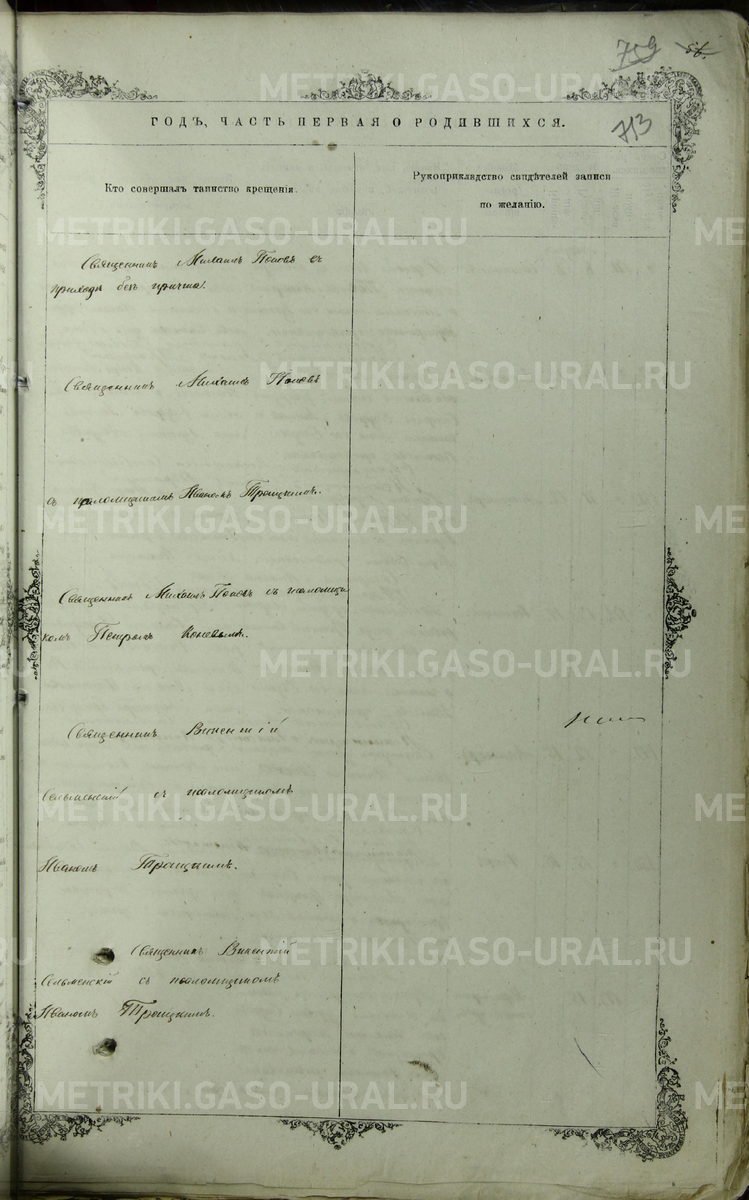 759 56.
713
ГОДЪ, ЧАСТЬ ПЕРВАЯ О РОДИВШИХСЯ.
Кто совершалъ таинство крещенія.
Рукоприкладство свидѣтелей записи
по желанію.
Священникъ Михаилъ Поповъ съ
прихода безъ причта.
Священникъ Михаилъ Поповъ
съ псаломщикомъ Иваномъ Троицкимъ.
Священникъ Михаилъ Поповъ съ псаломщи
комъ Петромъ Коневымъ.
Священникъ Викентій
Сельменскій съ псаломщикомъ
Иваномъ Троицкимъ.
Священникъ Викентій
Сельменскій съ псаломщикомъ
Иваномъ Троицкимъ.
METRIKI.GASO-URAL.RU